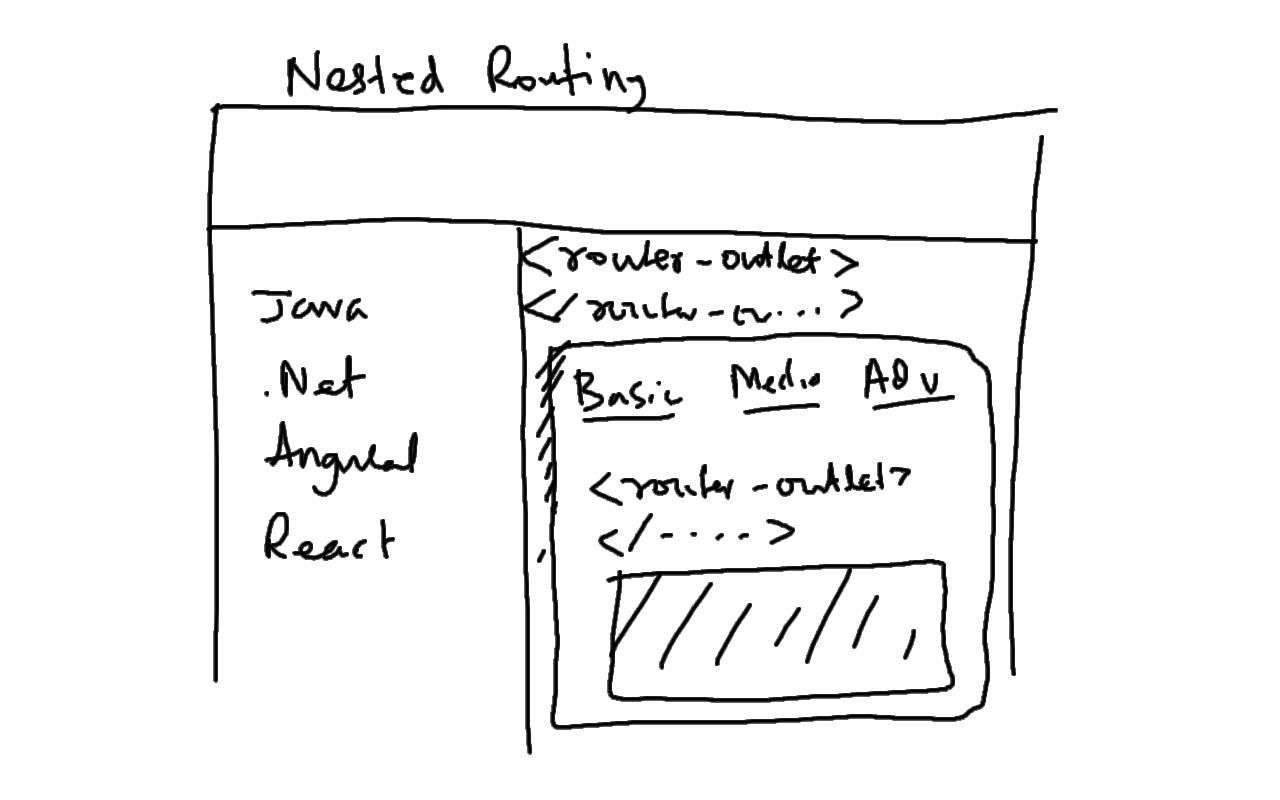 Nested Routing
Java
.Net
Angulal
React
<router-outlet>
</router-o....>
Basic Medio ADv
<router-outlet>
</.....>